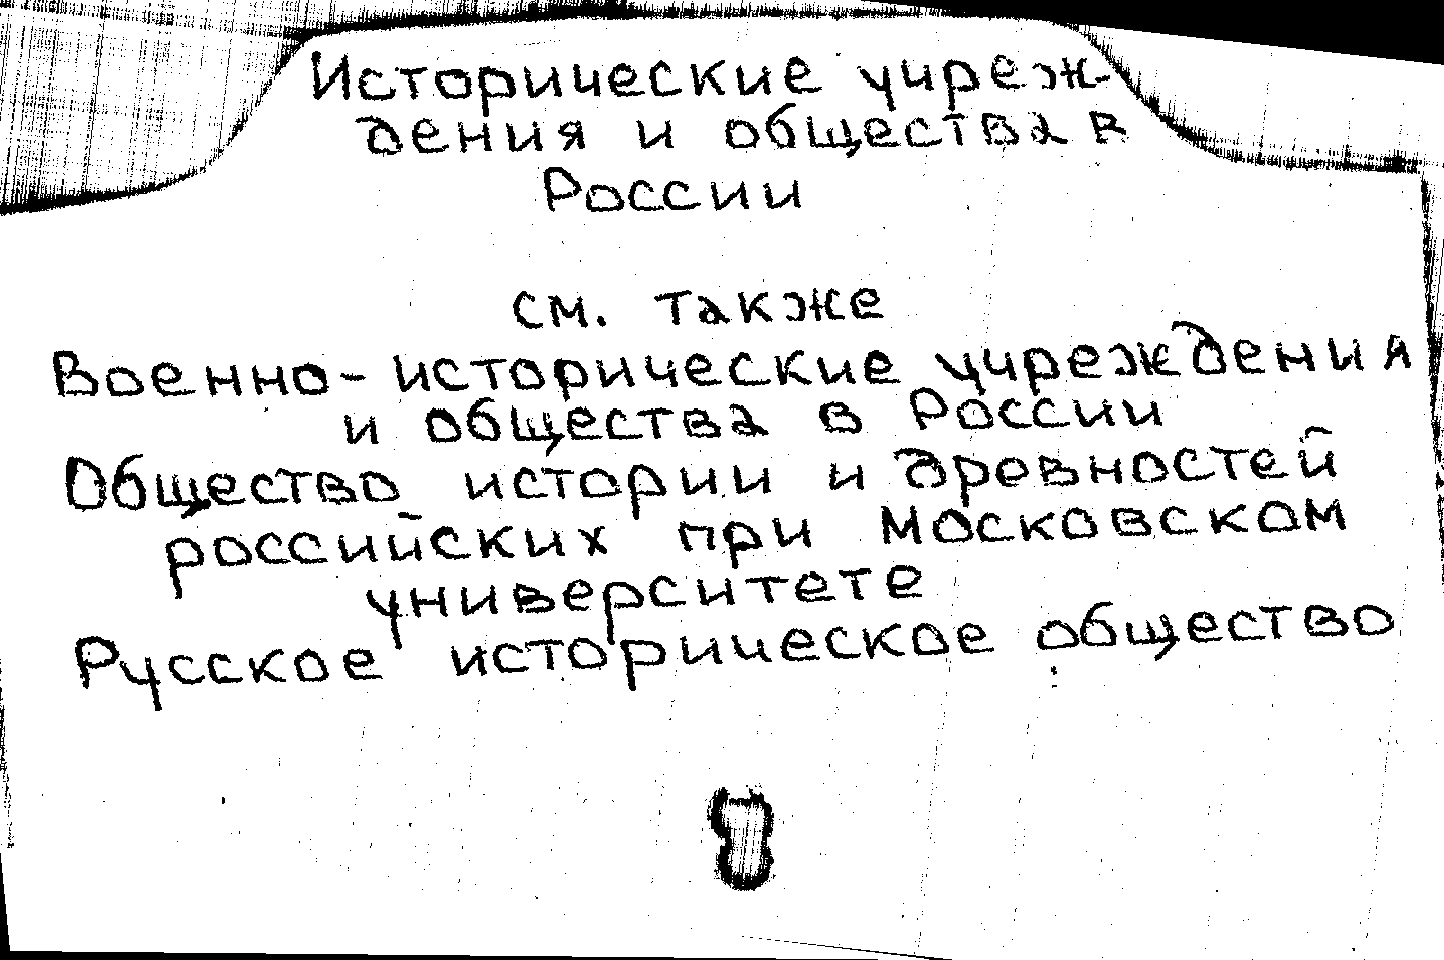 Исторические учреж-
дения и общества в
России
см. также
Военно-исторические учреждения
и общества в России
Общество истории и древностей
российских при Московском
университете
Русское историческое общество